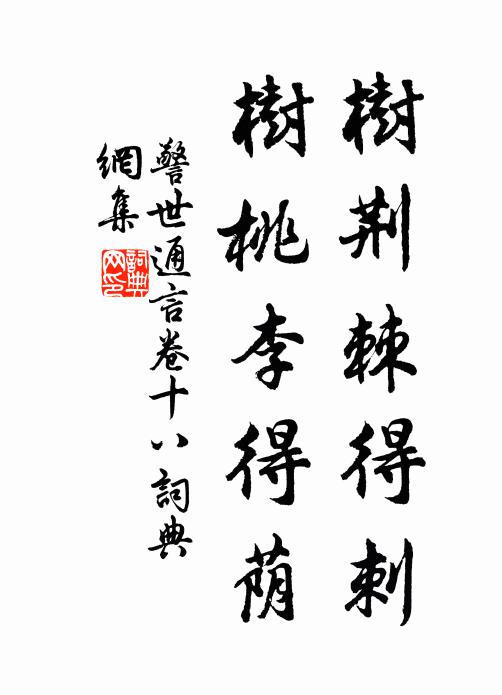 樹荆棘得刺
樹桃李得蔭
警世通言卷十八詞典
網集
詞典网印